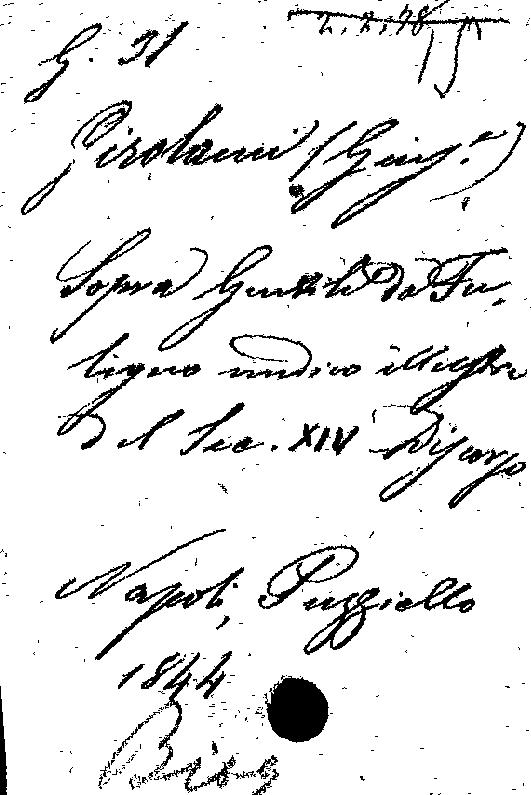 2.2.78
G. 31
Girolami (Gius.e)
Sopra Gentile da Fu-
ligno medico illustre
del Sec. XIV Discorso
Napoli, Puzziello
1844
Biog